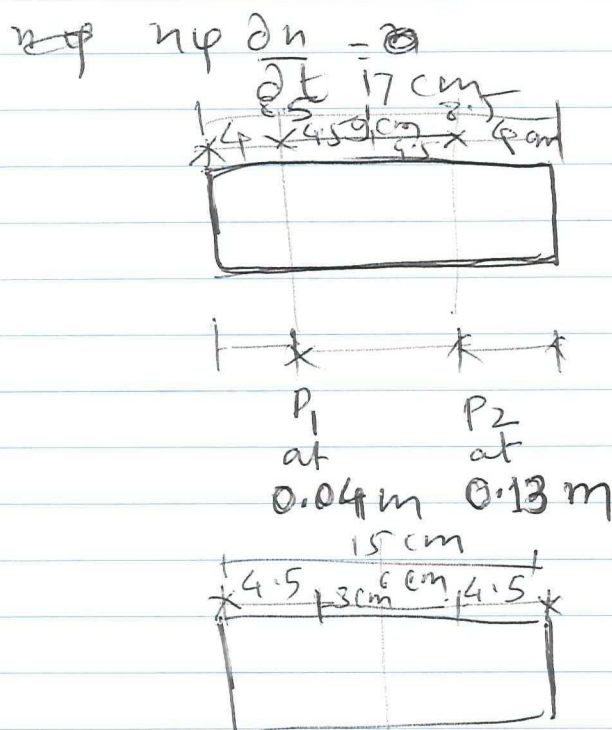 nφ ∂n/∂t =
17 cm
8.5 8.5
4 4.5 9 cm 4.5 4 cm
P1 P2
at at
0.04 m 0.13 m
15 cm
4.5 3 cm 6 cm 4.5